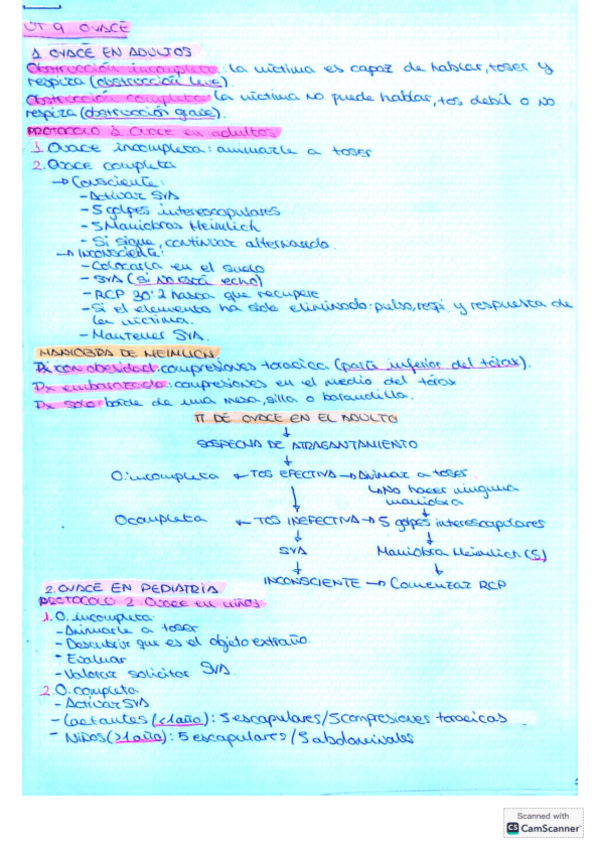 UT 9 OVACE
1. OVACE EN ADULTOS
Obstrucción incompleta: la víctima es capaz de hablar, toser y
respira (obstrucción leve).
Obstrucción completa: la víctima no puede hablar, tos debil o no
respira (obstrucción grave).
PROTOCOLO 1 Ovace en adultos
1. Ovace incompleta: animarle a toser
2. Ovace completa
→ Consciente:
- Activar SVA
- 5 golpes interescapulares
- 5 Maniobras Heimlich
- Si sigue, continuar alternando.
→ Inconsciente:
- Colocarla en el suelo
- SVA (si no está echo)
- RCP 30:2 hasta que recupere
- Si el elemento ha sido eliminado: pulso, respi. y respuesta de
la víctima.
- Mantener SVA.
MANIOBRA DE HEIMLICH
Px con obesidad: compresiones toracica (parte inferior del tórax).
Px embarazada: compresiones en el medio del tórax
Px solo: borde de una mesa, silla o barandilla.
TT DE OVACE EN EL ADULTO
↓
SOSPECHA DE ATRAGANTAMIENTO
↓
O. incompleta ← TOS EFECTIVA → Animar a toser.
↳ No hacer ninguna
maniobra
O completa ← TOS INEFECTIVA → 5 golpes interescapulares
↓ ↓
SVA Maniobra Heimlich (5)
↓ ↓
INCONSCIENTE → Comenzar RCP
2. OVACE EN PEDIATRIA
PROTOCOLO 2 Ovace en niños
1. O. incompleta
- Animarle a toser
- Descubrir que es el objeto extraño.
- Evaluar
- Valorar solicitar SVA.
2. O. completa
- Activar SVA
- Lactantes (<1año): 5 escapulares / 5 compresiones toracicas
- Niños (>1año): 5 escapulares / 5 abdominales
Scanned with
CS CamScanner